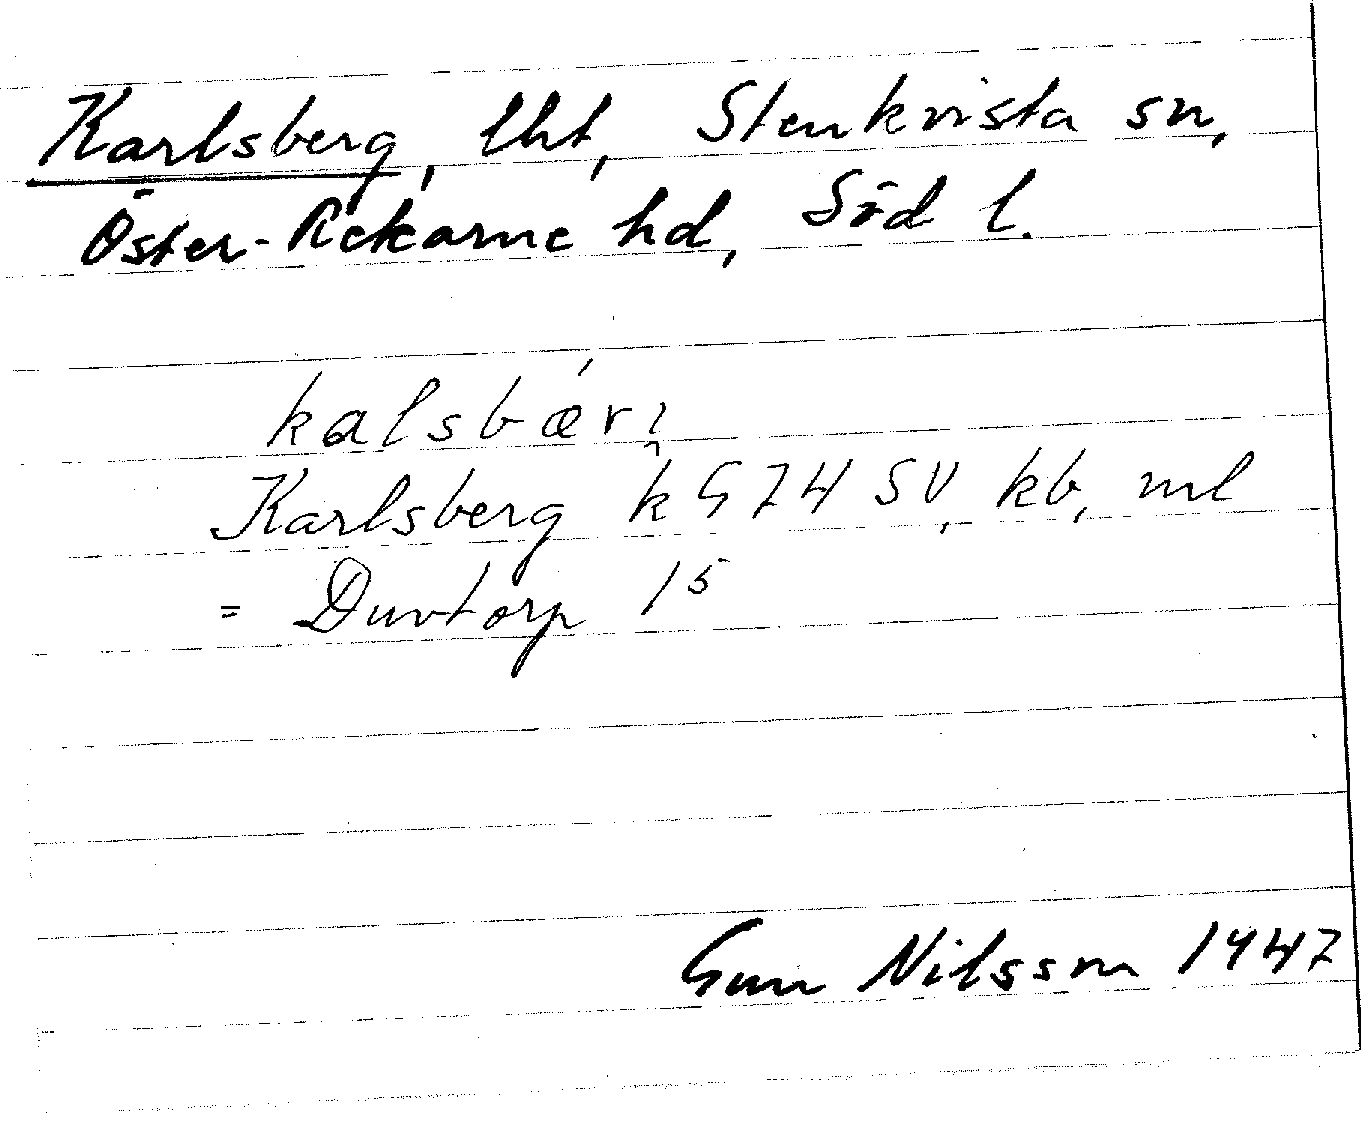 Karlsberg, lht, Stenkvista sn,
Öster-Rekarne hd, Söd l.
kalsbær
Karlsberg k G 74 SV, kb, ml
= Duvtorp 1⁵
Gun Nilsson 1947